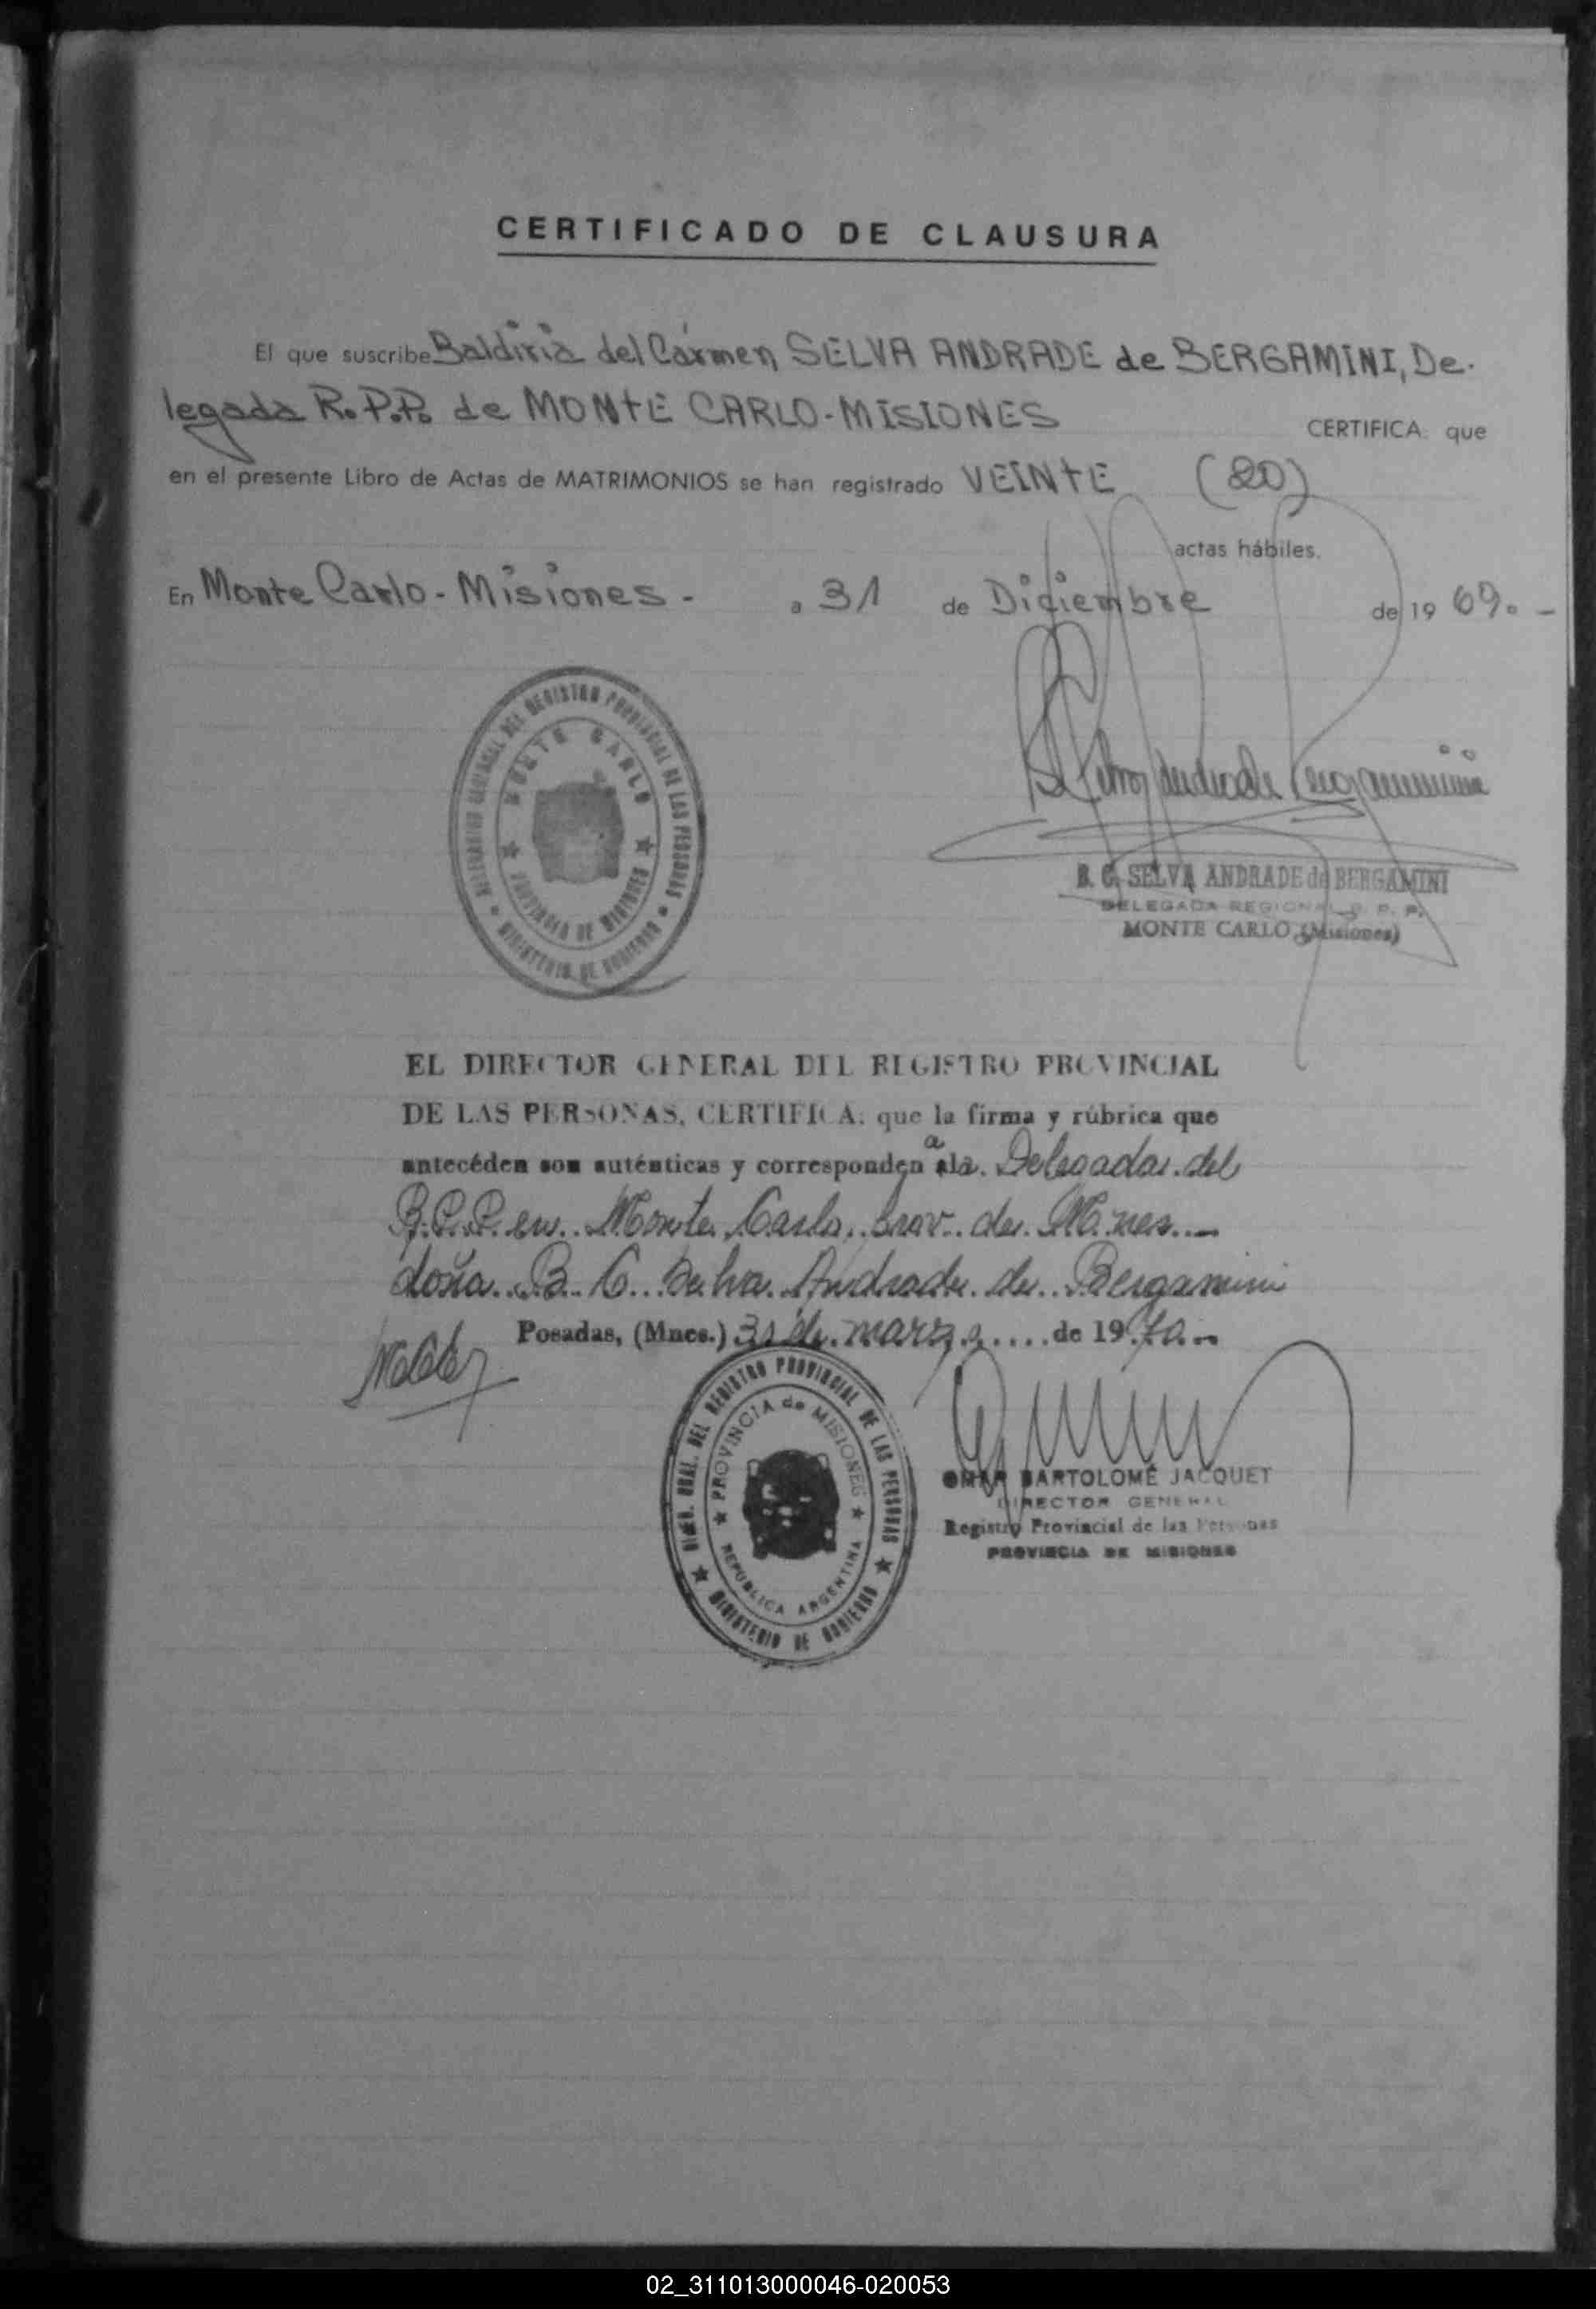 CERTIFICADO DE CLAUSURA
El que suscribe Baldiria del Cármen SELVA ANDRADE de BERGAMINI, De-
legada R.P.P. de MONTE CARLO-MISIONES CERTIFICA: que
en el presente Libro de Actas de MATRIMONIOS se han registrado VEINTE (20)
actas hábiles.
En Monte Carlo - Misiones - a 31 de Diciembre de 1969. -
REGISTRO PROVINCIAL DE LAS PERSONAS
MONTE CARLO
PROVINCIA DE MISIONES
MINISTERIO DE GOBIERNO
B. C. SELVA ANDRADE de BERGAMINI
DELEGADA REGIONAL R. P. P.
MONTE CARLO (Misiones)
EL DIRECTOR GENERAL DEL REGISTRO PROVINCIAL
DE LAS PERSONAS, CERTIFICA: que la firma y rúbrica que
antecéden son auténticas y corresponden a la Delegada del
R.P.P. en Monte Carlo, prov. de Mnes.
doña B. C. Selva Andrade de Bergamini
Posadas, (Mnes.) 31 de marzo de 1970.-
DIREC. GRAL. DEL REGISTRO PROVINCIAL DE LAS PERSONAS
PROVINCIA de MISIONES
REPUBLICA ARGENTINA
MINISTERIO DE GOBIERNO
OMAR BARTOLOMÉ JACQUET
DIRECTOR GENERAL
Registro Provincial de las Personas
PROVINCIA DE MISIONES
02_311013000046-020053